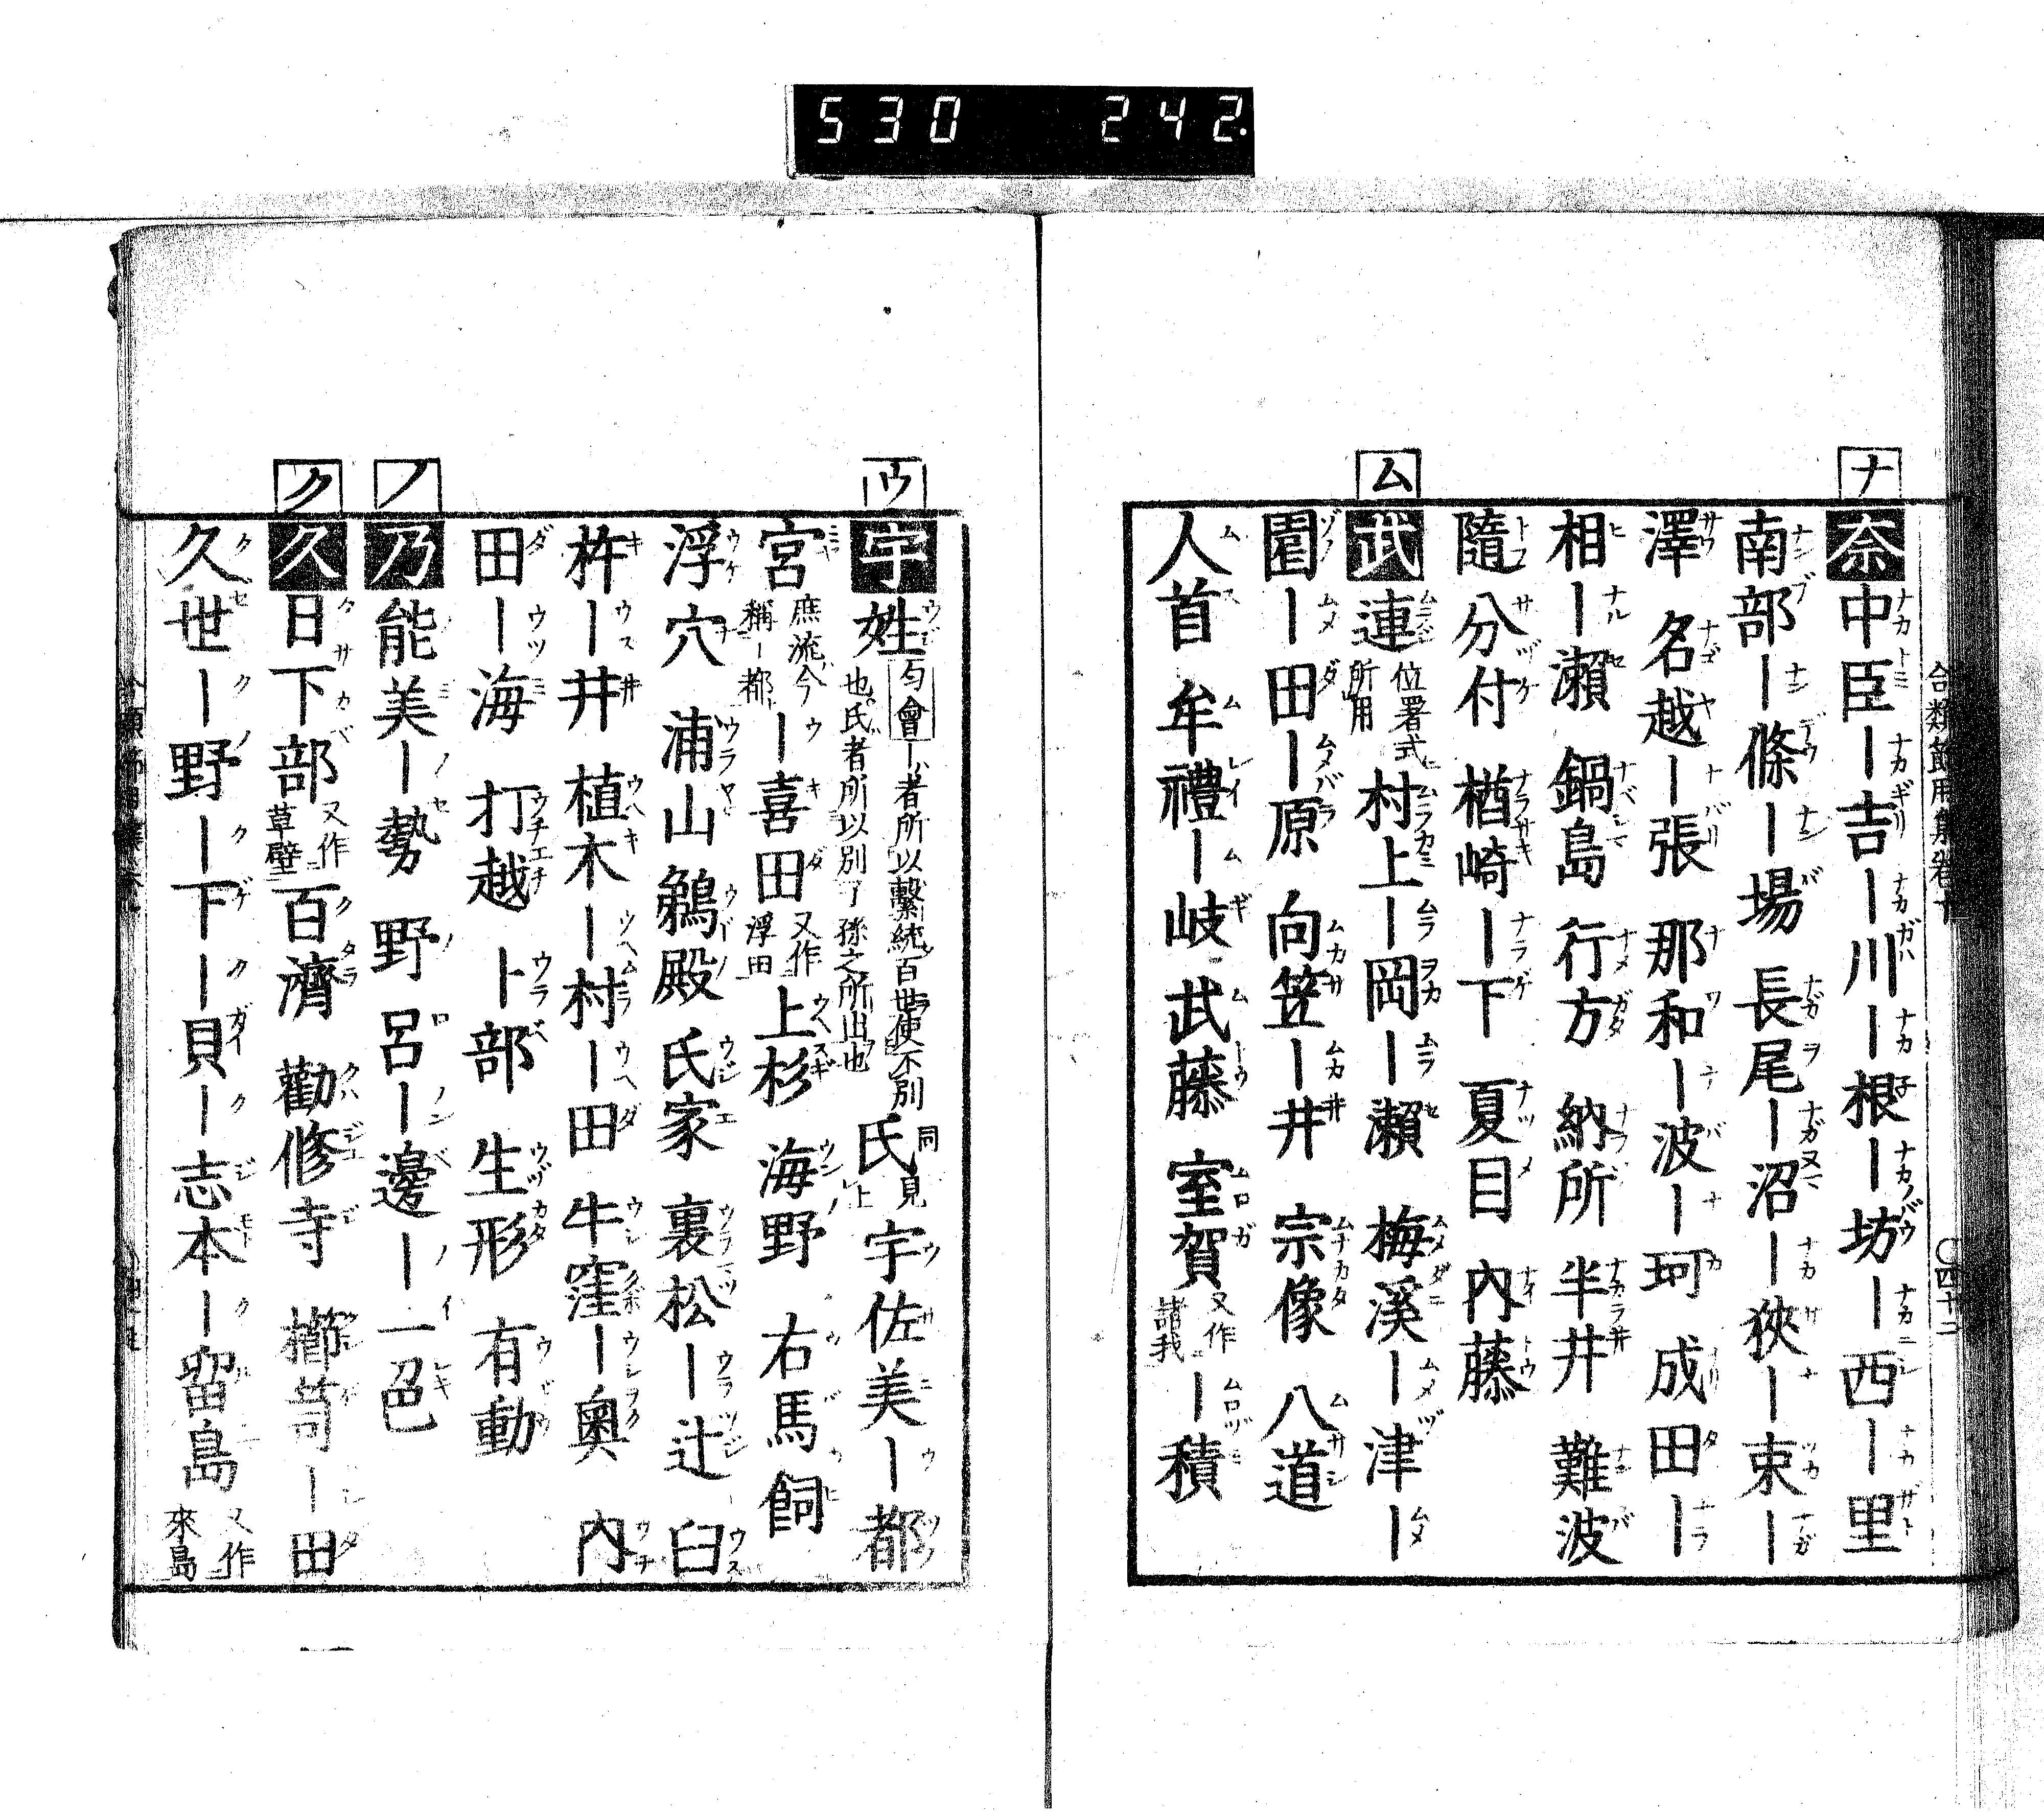 530 242.
合類節用集卷十
〇四十二
ナ
奈中臣ー吉ー川ー根ー坊ー西ー里
南部ー條ー場 長尾ー沼ー狹ー束ー
澤 名越ー張 那和ー波ー珂 成田ー
相ー瀨 鍋島 行方 納所 半井 難波
隨分付 楢崎ー下 夏目 內藤
ム
武連位署式所用村上ー岡ー瀨 梅溪ー津ー
園ー田ー原 向笠ー井 宗像 八道
人首 牟禮ー岐 武藤 室賀又作諸我ー積
ウ
宇姓匀會ー者所以繫統百世使不別也氏者所以別子孫之所出也氏同見上宇佐美ー都
宮庶流今稱ー都ー喜田又作浮田上杉 海野 右馬飼
浮穴 浦山 鵜殿 氏家 裏松ー辻 臼
杵ー井 植木ー村ー田 牛窪ー奧 內
田ー海 打越 卜部 生形 有動
ノ
乃能美ー勢 野呂ー邊ー一色
ク
久日下部又作草壁百濟 勸修寺 櫛笥ー田
久世ー野ー下ー貝ー志本ー留島又作來島